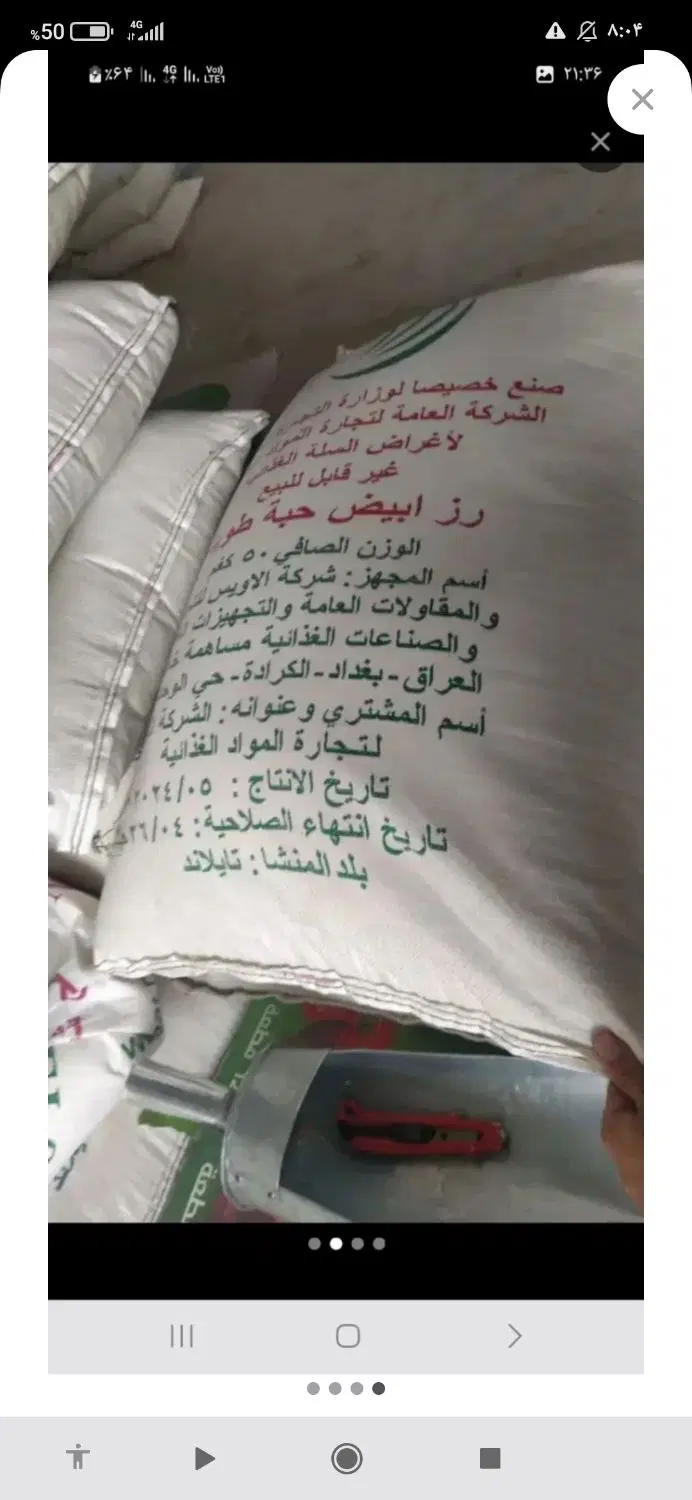 %50 4G ۸:۰۴
٪۶۴ 4G Vo) LTE1 ۲۱:۳۶
صنع خصيصا لوزارة
الشركة العامة لتجارة المواد
لأغراض السلة
غير قابل للبيع
رز ابيض حبة
الوزن الصافي ٥٠ كغم
أسم المجهز: شركة الاويس
والمقاولات العامة والتجهيزات
والصناعات الغذائية مساهمة
العراق-بغداد-الكرادة-حي
أسم المشتري وعنوانه: الشركة
لتجارة المواد الغذائية
تاريخ الانتاج: ٢٠٢٤/٠٥
تاريخ انتهاء الصلاحية: ٢٦/٠٤
بلد المنشا: تايلاند